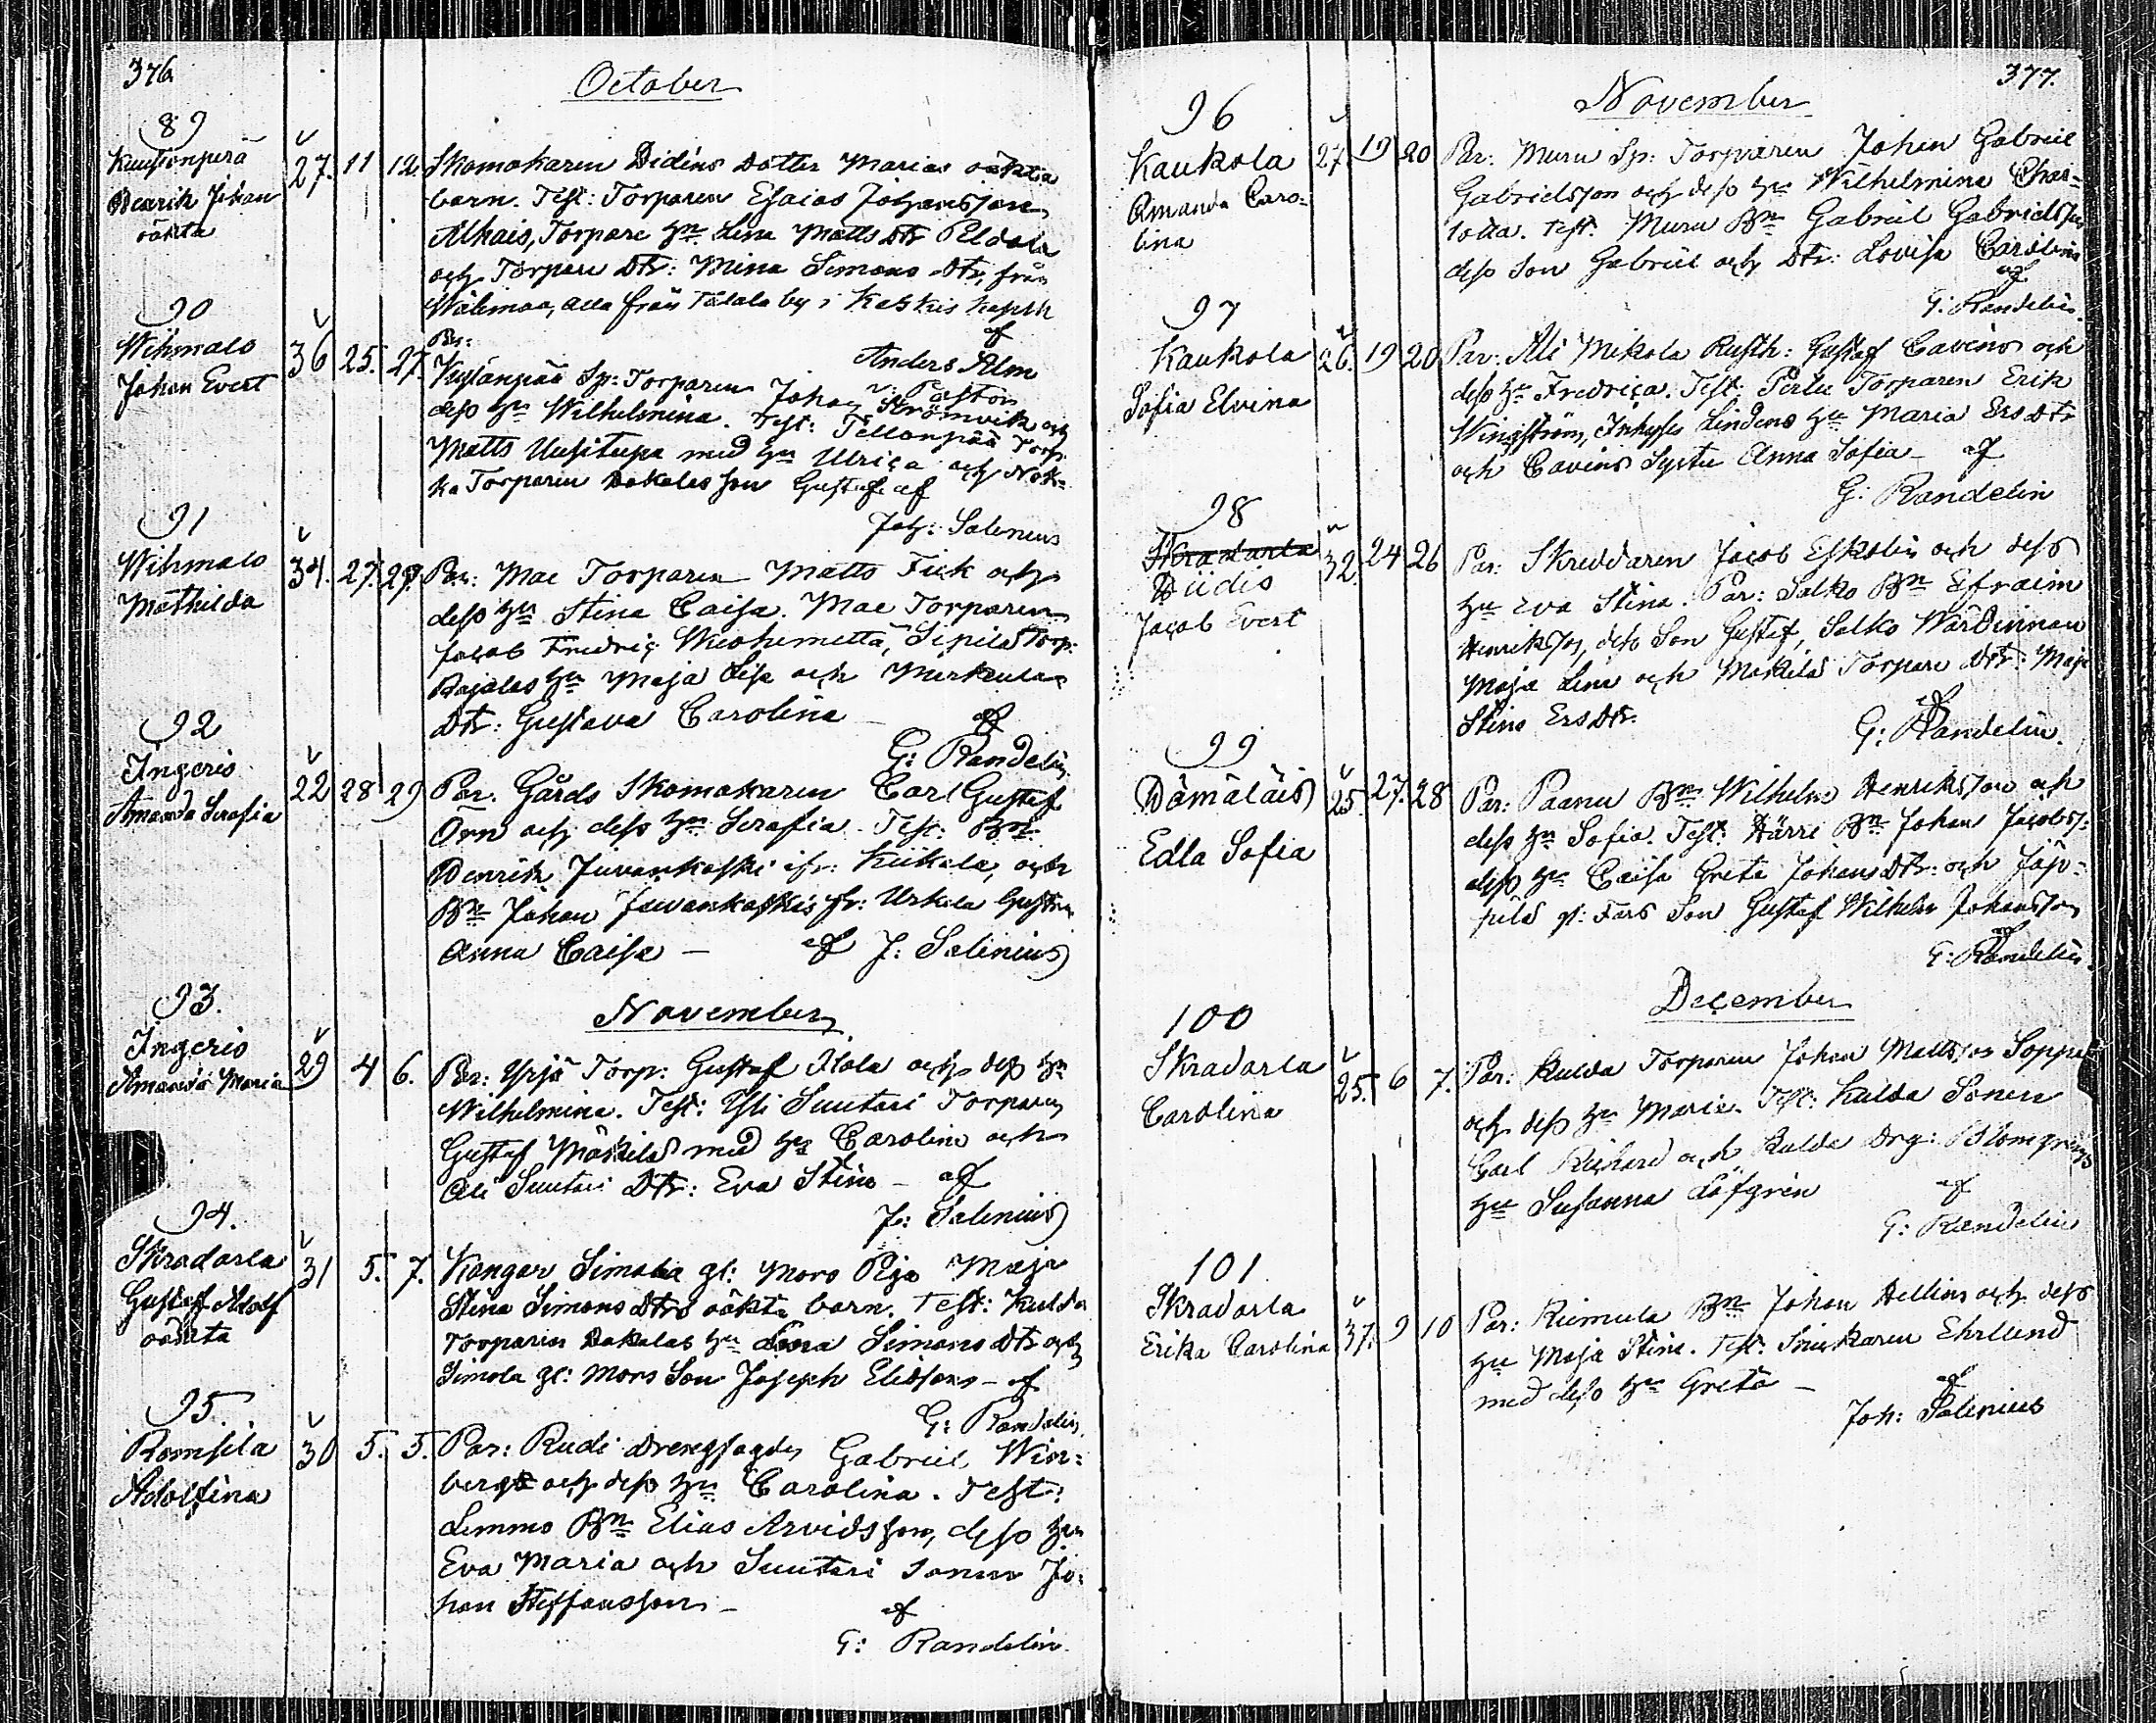 376
October
89
Henrik Johan
oäkta
27. 11 12.
Skomakaren Didins dotter Marias oäkta
barn. Test: Torparen Esaias Johansson
Torpare hu Lena Matts Dtr
och Torpare Dtr: Mina Simons Dtr, från
alla från Talala by i
af
Anders Alm
v: Pastor
90
Wihmalo
Johan Evert
36 25. 27.
Par:
Sp: Torparen Johan Strömvik och
dess hu Wilhelmina. Test: Tellanpää Torp.
Matts Uusitupa med hu Ulrica och Nok-
ka Torparen Dakalas son Gustaf af
Joh: Salenius
91
Wihmalo
Mathilda
34. 27. 29.
Par: Mae Torparen Matts Fick och
dess hu Stina Caisa. Mae Torparen
Jacob Fredric Sipilä Torp:
Rajalas hu Maja Lisa och
Dtr: Gustava Carolina
af
G: Randelin
92
Ingeris
Amanda Serafia
22 28 29
Par. Gårds Skomakaren Carl Gustaf
Örn och dess hu Serafia. Test: Bn
Henrik Juvankoski ifr: Kiikala, och
Bn Johan Juvankoskis fr: Urkola hustru
Anna Caisa — af J: Salenius
November
93.
Ingeris
Amanda Maria
29 4 6.
Par: Yrjä Torp: Gustaf Itala och dess hu
Wilhelmina. Test: Yli Suutari Torparen
Gustaf Mäkilä med hu Carolina och
Ali Suutari Dtr: Eva Stina — af
J: Salenius
94.
Skradarla
Gustaf Adolf
oäkta
31 5. 7.
Kangar Simola gl: Mors Piga Maja
Stina Simons Dtrs oäkta barn. Test: Kulda
Torparen Dakalas hu Lena Simons Dtr och
Simola gl: Mors Son Joseph Eliasson — af
G: Randelin
95.
Romsila
Adolfina
30 5. 5.
Par: Rudi Drengfogden Gabriel Win-
berg och dess hu Carolina. Test:
Lemmo Bn Elias Arvidsson, dess hu
Eva Maria och Suutari sonen Jo-
han Steffansson —
af
G: Randelin
377.
November
96
Kaukola
Amanda Caro-
lina
27. 19 20
Par: Muru Sp: Torparen Johan Gabriel
Gabrielsson och dess hu Wilhelmina Char-
lotta. Test. Muru Bn Gabriel Gabrielsson
dess Son Gabriel och Dtr: Lovisa Carolina
af
G: Randelin.
97
Kaukola
Sofia Elvina
26. 19 20
Par: Ali Mikola Rusth: Gustaf Cavenius och
dess hu Fredrica. Test: Perlu Torparen Erik
Wingström, Inhyses Lindens hu Maria Ers Dtr
och Cavenius Syster Anna Sofia — af
G: Randelin
98
Skradarla
Hiidis
Jacob Evert
32. 24 26
Par: Skreddaren Jacob Eskolin och dess
hu Eva Stina. Par: Salko Bn Efraim
Henriksson, dess Son Gustaf, Salko Wärdinnan
Maja Lena och Mäkilä Torpare Dtr: Maja
Stina Ers Dtr.
af
G: Randelin.
99
Hämäläis
Edla Sofia
25. 27. 28
Par: Paanu Bn Wilhelm Henriksson och
dess hu Sofia. Test. Härri Bn Johan Jacobss:
dess hu Caisa Greta Johans Dtr: och Jäp-
pilä gl: Fars Son Gustaf Wilhelm Johansson
af
G: Randelin.
December
100
Skradarla
Carolina
25. 6 7.
Par: Kulda Torparen Johan Mattsson
och dess hu Maria. Test: Kulda Sonen
Carl Richard och Kulda Drg: Blomqvists
hu Susanna Löfgren
af
G: Randelin
101
Skradarla
Erika Carolina
37. 9 10
Par: Riimula Bn Johan Hellin och dess
hu Maja Stina. Test: Snickaren Ehrlund
med dess hu Greta —
af
Joh: Salenius